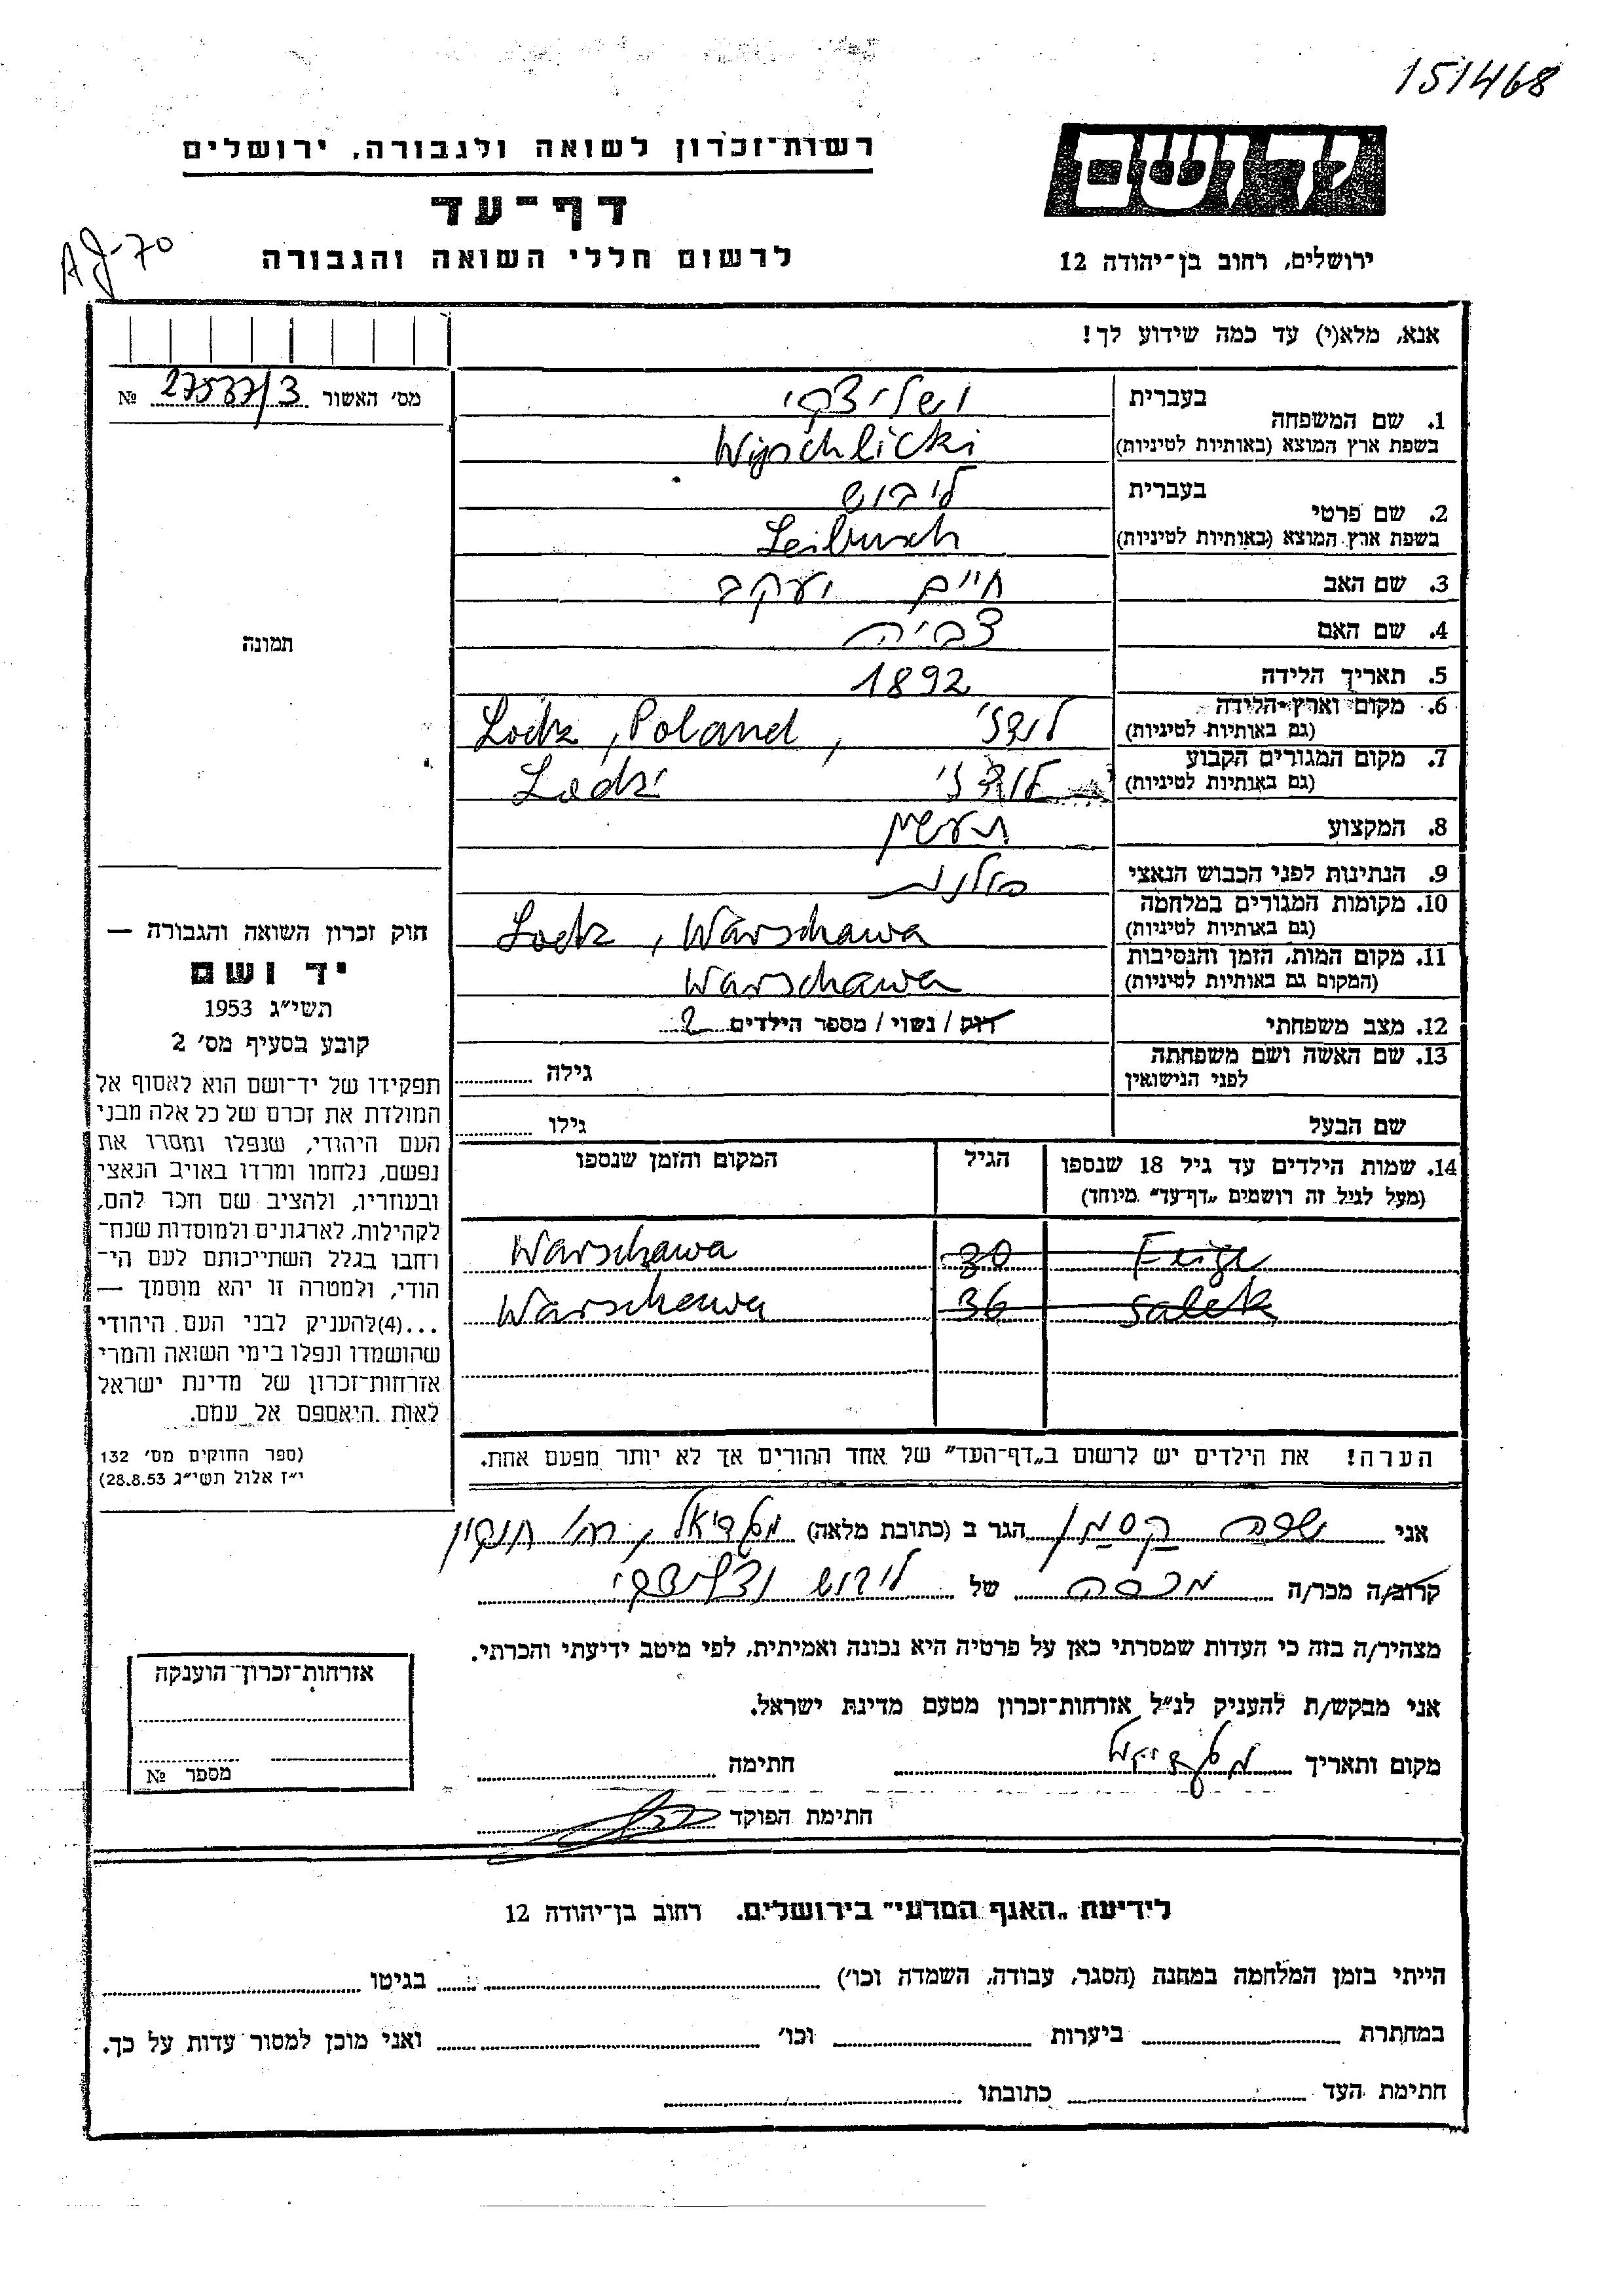 151468
יד ושם
רשות־זכרון לשואה ולגבורה, ירושלים
דף־עד
לרשום חללי השואה והגבורה
ירושלים, רחוב בן־יהודה 12
AJ-70
אנא, מלא(י) עד כמה שידוע לך!
מס׳ האשור 27537/3 №
תמונה
1. שם המשפחה
בעברית ושליצקי
בשפת ארץ המוצא (באותיות לטיניות) Wyschlicki
2. שם פרטי
בעברית ליבוש
בשפת ארץ המוצא (באותיות לטיניות) Leibusch
3. שם האב חיים יעקב
4. שם האם צביה
5. תאריך הלידה 1892
6. מקום וארץ הלידה לודז׳
(גם באותיות לטיניות) Lodz, Poland,
7. מקום המגורים הקבוע לודז׳
(גם באותיות לטיניות) Lodz
8. המקצוע תעשין
9. הנתינות לפני הכבוש הנאצי פולנית
10. מקומות המגורים במלחמה
(גם באותיות לטיניות) Lodz, Warschawa
11. מקום המות, הזמן והנסיבות
(המקום גם באותיות לטיניות) Warschawa
12. מצב משפחתי רוק / נשוי / מספר הילדים 2
13. שם האשה ושם משפחתה
לפני הנישואין גילה
שם הבעל גילו
14. שמות הילדים עד גיל 18 שנספו הגיל המקום והזמן שנספו
(מעל לגיל זה רושמים „דף־עד״ מיוחד)
Feige 30 Warschawa
Salek 36 Warschawa
הערה! את הילדים יש לרשום ב„דף־העד״ של אחד ההורים אך לא יותר מפעם אחת.
חוק זכרון השואה והגבורה —
יד ושם
תשי״ג 1953
קובע בסעיף מס׳ 2
תפקידו של יד־ושם הוא לאסוף אל
המולדת את זכרם של כל אלה מבני
העם היהודי, שנפלו ומסרו את
נפשם, נלחמו ומרדו באויב הנאצי
ובעוזריו, ולהציב שם וזכר להם,
לקהילות, לארגונים ולמוסדות שנח־
רחבו בגלל השתייכותם לעם הי־
הודי, ולמטרה זו יהא מוסמך —
...(4)להעניק לבני העם היהודי
שהושמדו ונפלו בימי השואה והמרי
אזרחות־זכרון של מדינת ישראל
לאות היאספם אל עמם.
(ספר החוקים מס׳ 132
י״ז אלול תשי״ג 28.8.53)
אני שרה קסמן הגר ב (כתובת מלאה) מגדיאל, רח׳ חנקין
קרוב/ה מכר/ה מכרה של ליבוש
מצהיר/ה בזה כי העדות שמסרתי כאן על פרטיה היא נכונה ואמיתית, לפי מיטב ידיעתי והכרתי.
אני מבקש/ת להעניק לנ״ל אזרחות־זכרון מטעם מדינת ישראל.
מקום ותאריך מגדיאל חתימה
חתימת הפוקד
אזרחות־זכרון הוענקה
מספר №
לידיעת „האגף המדעי״ בירושלים. רחוב בן־יהודה 12
הייתי בזמן המלחמה במחנה (הסגר, עבודה, השמדה וכו׳) בגיטו
במחתרת ביערות וכו׳ ואני מוכן למסור עדות על כך.
חתימת העד כתובתו